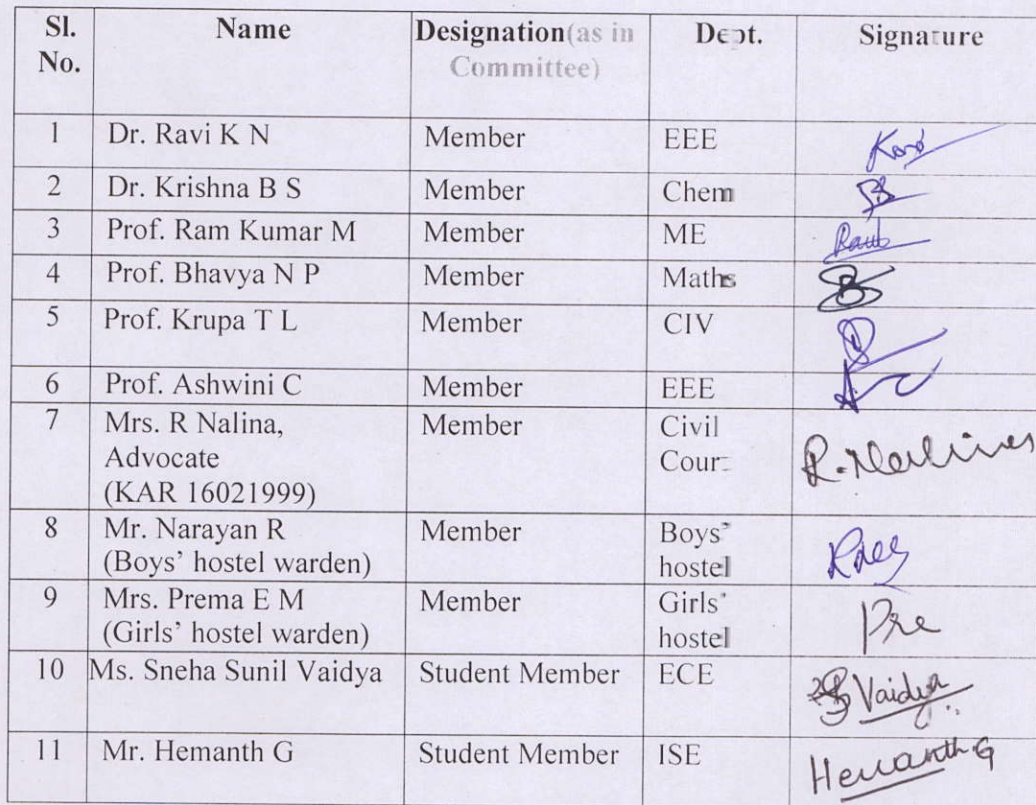 Sl. No. Name Designation(as in Committee) Dept. Signature
1 Dr. Ravi K N Member EEE
2 Dr. Krishna B S Member Chem
3 Prof. Ram Kumar M Member ME
4 Prof. Bhavya N P Member Maths
5 Prof. Krupa T L Member CIV
6 Prof. Ashwini C Member EEE
7 Mrs. R Nalina, Member Civil
Advocate Court
(KAR 16021999)
8 Mr. Narayan R Member Boys'
(Boys' hostel warden) hostel
9 Mrs. Prema E M Member Girls'
(Girls' hostel warden) hostel Pre
10 Ms. Sneha Sunil Vaidya Student Member ECE Vaidya
11 Mr. Hemanth G Student Member ISE Hemanth G